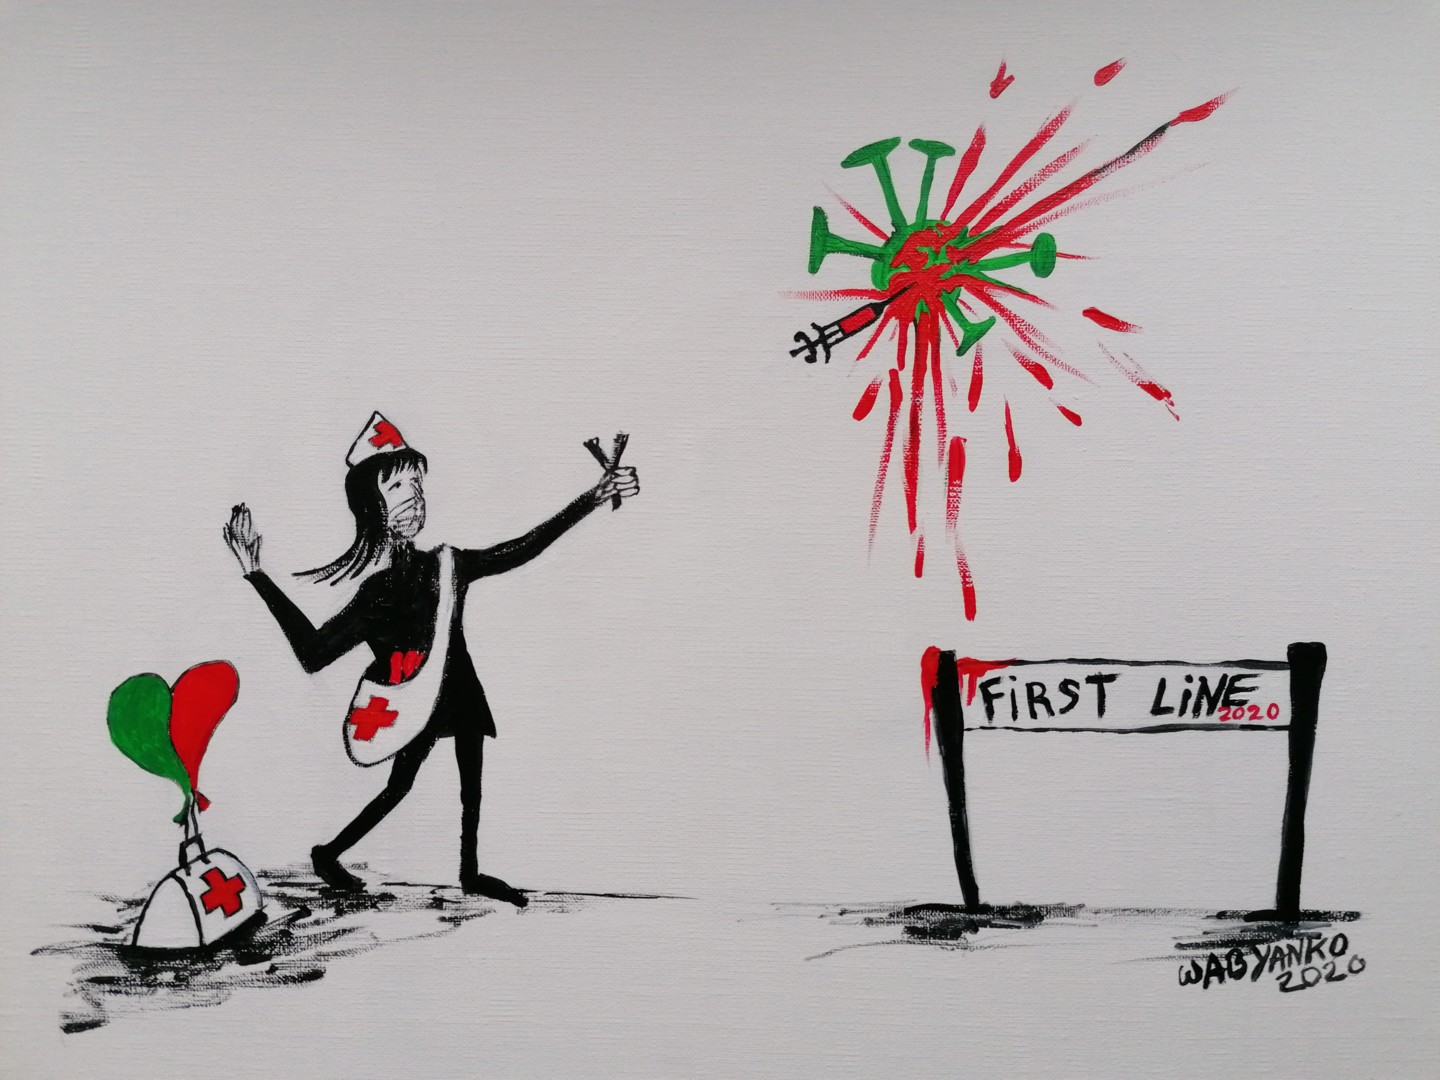 FiRST LiNE
2020
WABYANKO
2020